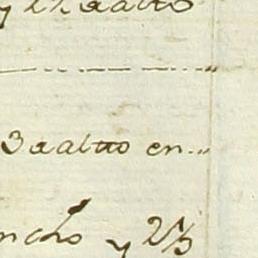 y 22 a alto
3 a alto en...
ncho y 2⅓